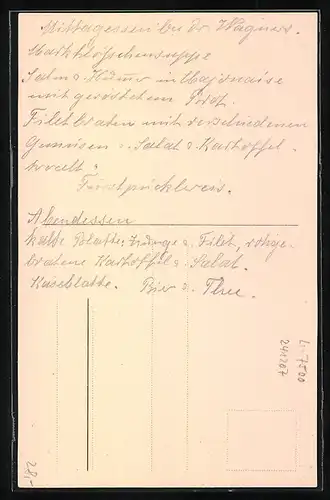 Mittagessen bei Dr. Wagners.
Markklöschensuppe
Salm u. Hummer in Majonaise
mit geröstetem Brot.
Filetbraten mit verschiedenen
Gemüsen u. Salat u. Kartoffel-
Fürstpücklereis.
Abendessen
Kalte Platte: Zunge u. Filet, rohge-
bratene Kartoffel u. Salat.
Käseblatte. Bier u. Thee.
Li 7500
241207
28,-